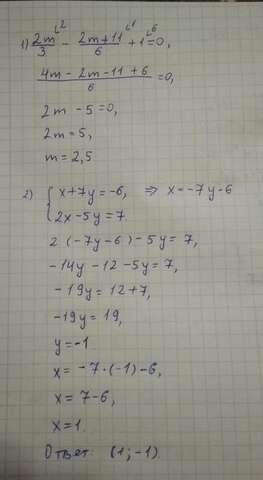 1) 2m/3 ² - (2m+11)/6 ¹ + 1 ⁶ = 0,
(4m - 2m - 11 + 6)/6 = 0,
2m - 5 = 0,
2m = 5,
m = 2,5
2) { x + 7y = -6, ⇒ x = -7y - 6
2x - 5y = 7.
2(-7y-6) - 5y = 7,
-14y - 12 - 5y = 7,
-19y = 12 + 7,
-19y = 19,
y = -1
x = -7·(-1) - 6,
x = 7 - 6,
x = 1.
Ответ: (1; -1)